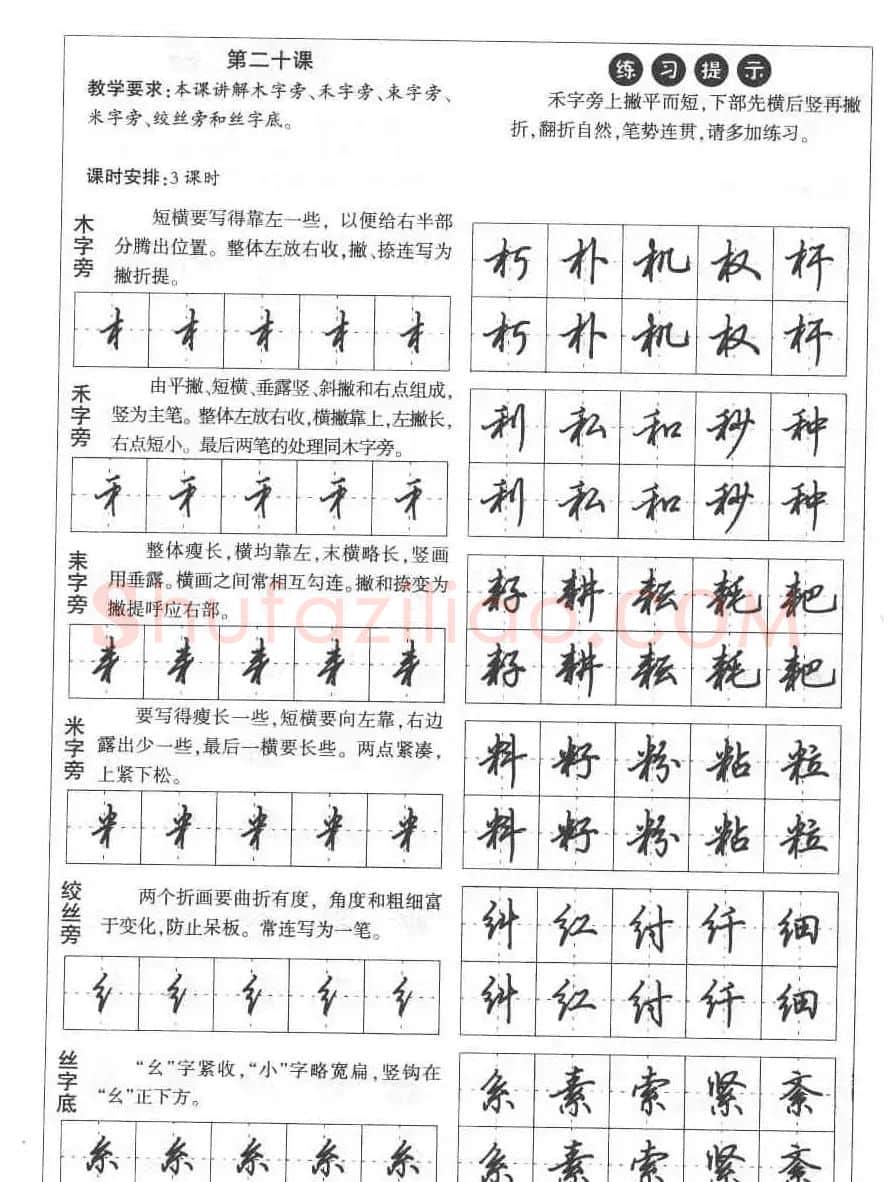 第二十课
教学要求:本课讲解木字旁、禾字旁、耒字旁、
米字旁、绞丝旁和丝字底。
课时安排:3课时
练习提示
禾字旁上撇平而短,下部先横后竖再撇
折,翻折自然,笔势连贯,请多加练习。
木字旁
短横要写得靠左一些,以便给右半部
分腾出位置。整体左放右收,撇、捺连写为
撇折提。
朽 朴 机 权 杆
朽 朴 机 权 杆
禾字旁
由平撇、短横、垂露竖、斜撇和右点组成,
竖为主笔。整体左放右收,横撇靠上,左撇长,
右点短小。最后两笔的处理同木字旁。
利 私 和 秒 种
利 私 和 秒 种
耒字旁
整体瘦长,横均靠左,末横略长,竖画
用垂露。横画之间常相互勾连。撇和捺变为
撇提呼应右部。
耔 耕 耘 耗 耙
耔 耕 耘 耗 耙
Shufaziliao.COM
米字旁
要写得瘦长一些,短横要向左靠,右边
露出少一些,最后一横要长些。两点紧凑,
上紧下松。
料 籽 粉 粘 粒
料 籽 粉 粘 粒
绞丝旁
两个折画要曲折有度,角度和粗细富
于变化,防止呆板。常连写为一笔。
纠 红 纣 纤 细
纠 红 纣 纤 细
丝字底
“幺”字紧收,“小”字略宽扁,竖钩在
“幺”正下方。
糸 糸 糸 糸 糸
系 素 索 紧 紊
系 素 索 紧 紊